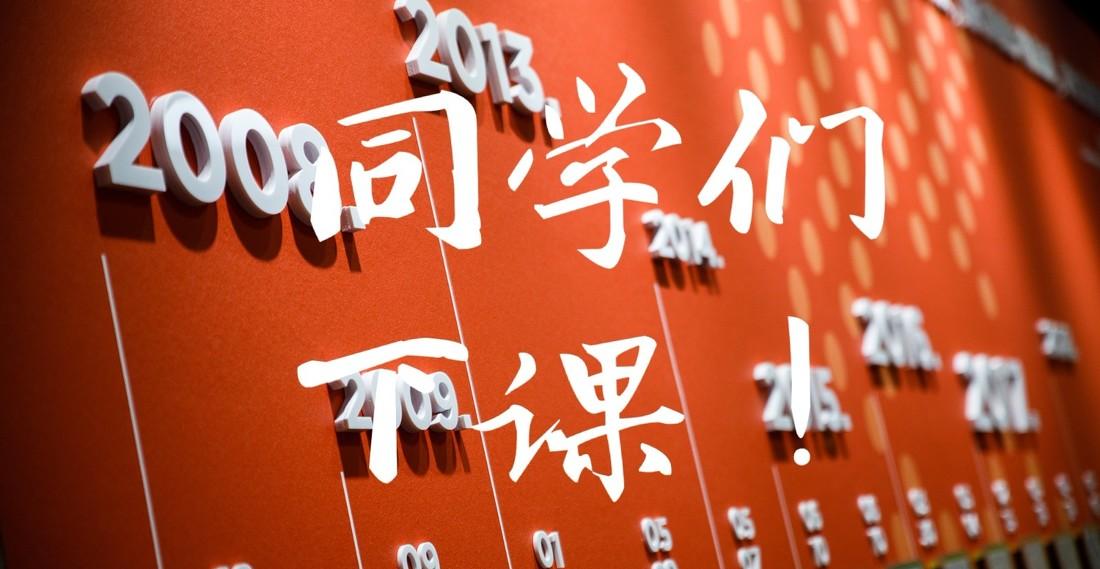 2013.
2008.
同学们
2014.
下课！
2009.
2015.
2016.
2017.
09
01
05
05
07